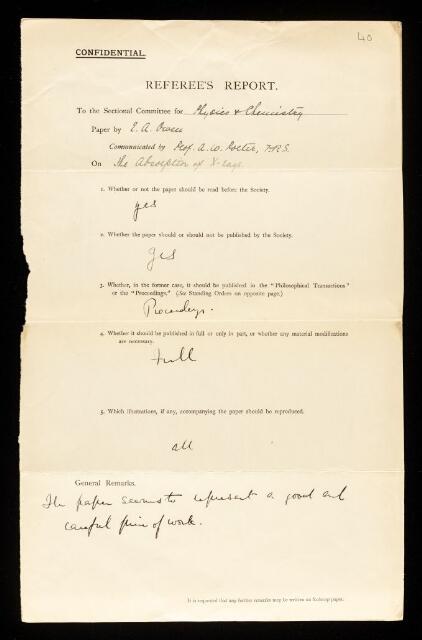 40
CONFIDENTIAL.
REFEREE'S REPORT.
To the Sectional Committee for Physics & Chemistry
Paper by E. A. Owen
Communicated by Prof. A. W. Porter, F.R.S.
On The Absorption of X-rays
1. Whether or not the paper should be read before the Society.
yes
2. Whether the paper should or should not be published by the Society.
yes
3. Whether, in the former case, it should be published in the "Philosophical Transactions"
or the "Proceedings." (See Standing Orders on opposite page.)
Proceedings.
4. Whether it should be published in full or only in part, or whether any material modifications
are necessary.
full
5. Which illustrations, if any, accompanying the paper should be reproduced.
all
General Remarks.
The paper seems to represent a good and
careful piece of work.
It is requested that any further remarks may be written on foolscap paper.